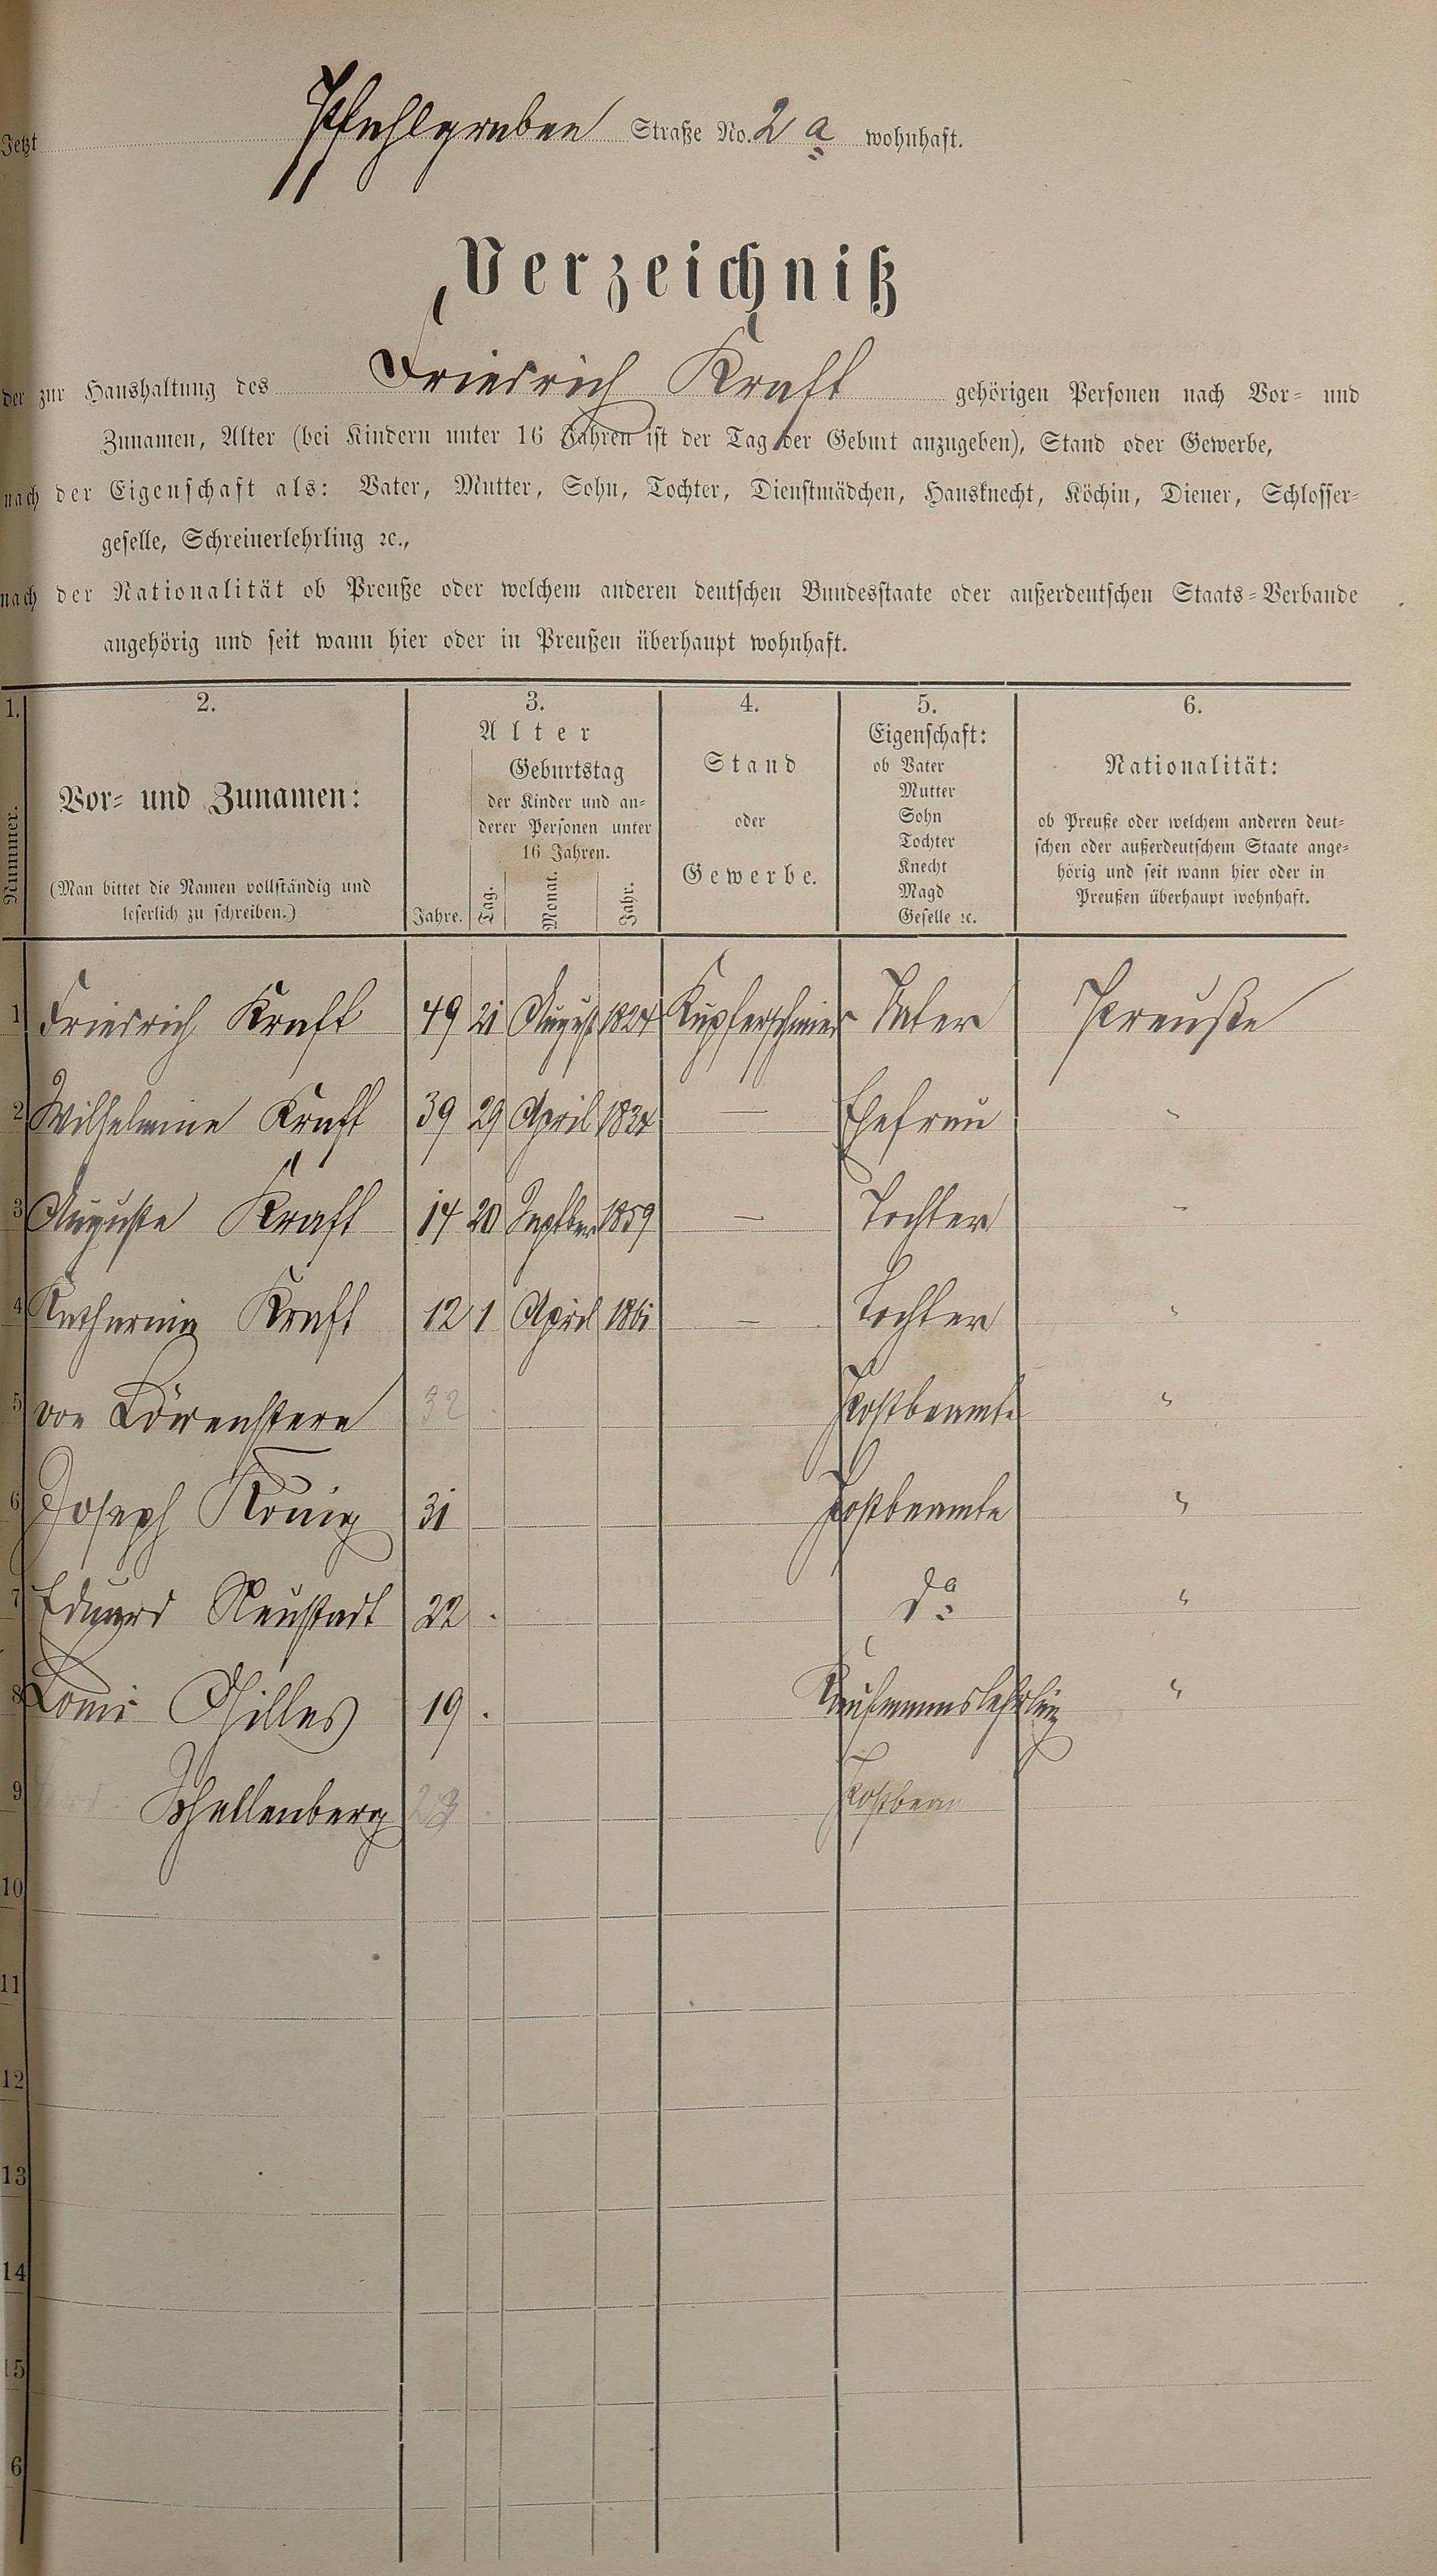 Jetzt Pfuhlgruben Straße No. 2 a wohnhaft.
Verzeichniß
der zur Haushaltung des Friedrich Kraft gehörigen Personen nach Vor- und
Zunamen, Alter (bei Kindern unter 16 Jahren ist der Tag der Geburt anzugeben), Stand oder Gewerbe,
nach der Eigenschaft als: Vater, Mutter, Sohn, Tochter, Dienstmädchen, Hausknecht, Köchin, Diener, Schlosser-
geselle, Schreinerlehrling ꝛc.,
nach der Nationalität ob Preuße oder welchem anderen deutschen Bundesstaate oder außerdeutschen Staats-Verbande
angehörig und seit wann hier oder in Preußen überhaupt wohnhaft.
1. 2. 3. 4. 5. 6.
Nummer.
Vor- und Zunamen:
(Man bittet die Namen vollständig und
leserlich zu schreiben.)
Alter
Geburtstag
der Kinder und an-
derer Personen unter
16 Jahren.
Jahre. Tag. Monat. Jahr.
Stand
oder
Gewerbe.
Eigenschaft:
ob Vater
Mutter
Sohn
Tochter
Knecht
Magd
Geselle ꝛc.
Nationalität:
ob Preuße oder welchem anderen deut-
schen oder außerdeutschem Staate ange-
hörig und seit wann hier oder in
Preußen überhaupt wohnhaft.
1 Friedrich Kraft 49 21 August 1824 Kupferschmied Vater Preuße
2 Wilhelmine Kraft 39 29 April 1834 — Ehefrau "
3 Auguste Kraft 14 20 Septber 1859 — Tochter "
4 Katharina Kraft 12 1 April 1861 — Tochter "
5 von Löwenstern 32 Postbeamte "
6 Joseph König 31 Postbeamte "
7 Eduard Neustadt 22 do "
8 Louis Gilles 19 Kaufmannslehrling "
9 Schellenberg 23 Postbeam
10
11
12
13
14
15
6